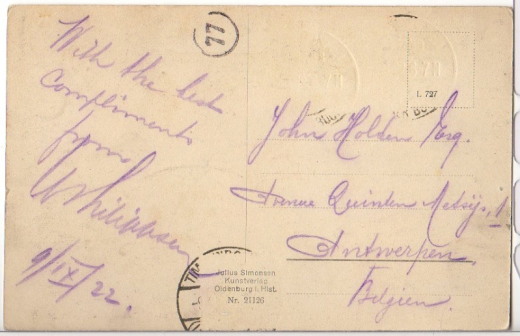 With the best
Compliments
from
Philippsen
9/IX/22.
77
I. 727
John Holden Esq.
Avenue Quinten Metsijs, 1
Antwerpen
Belgien.
Julius Simonsen
Kunstverlag
Oldenburg i. Hlst.
Nr. 21126